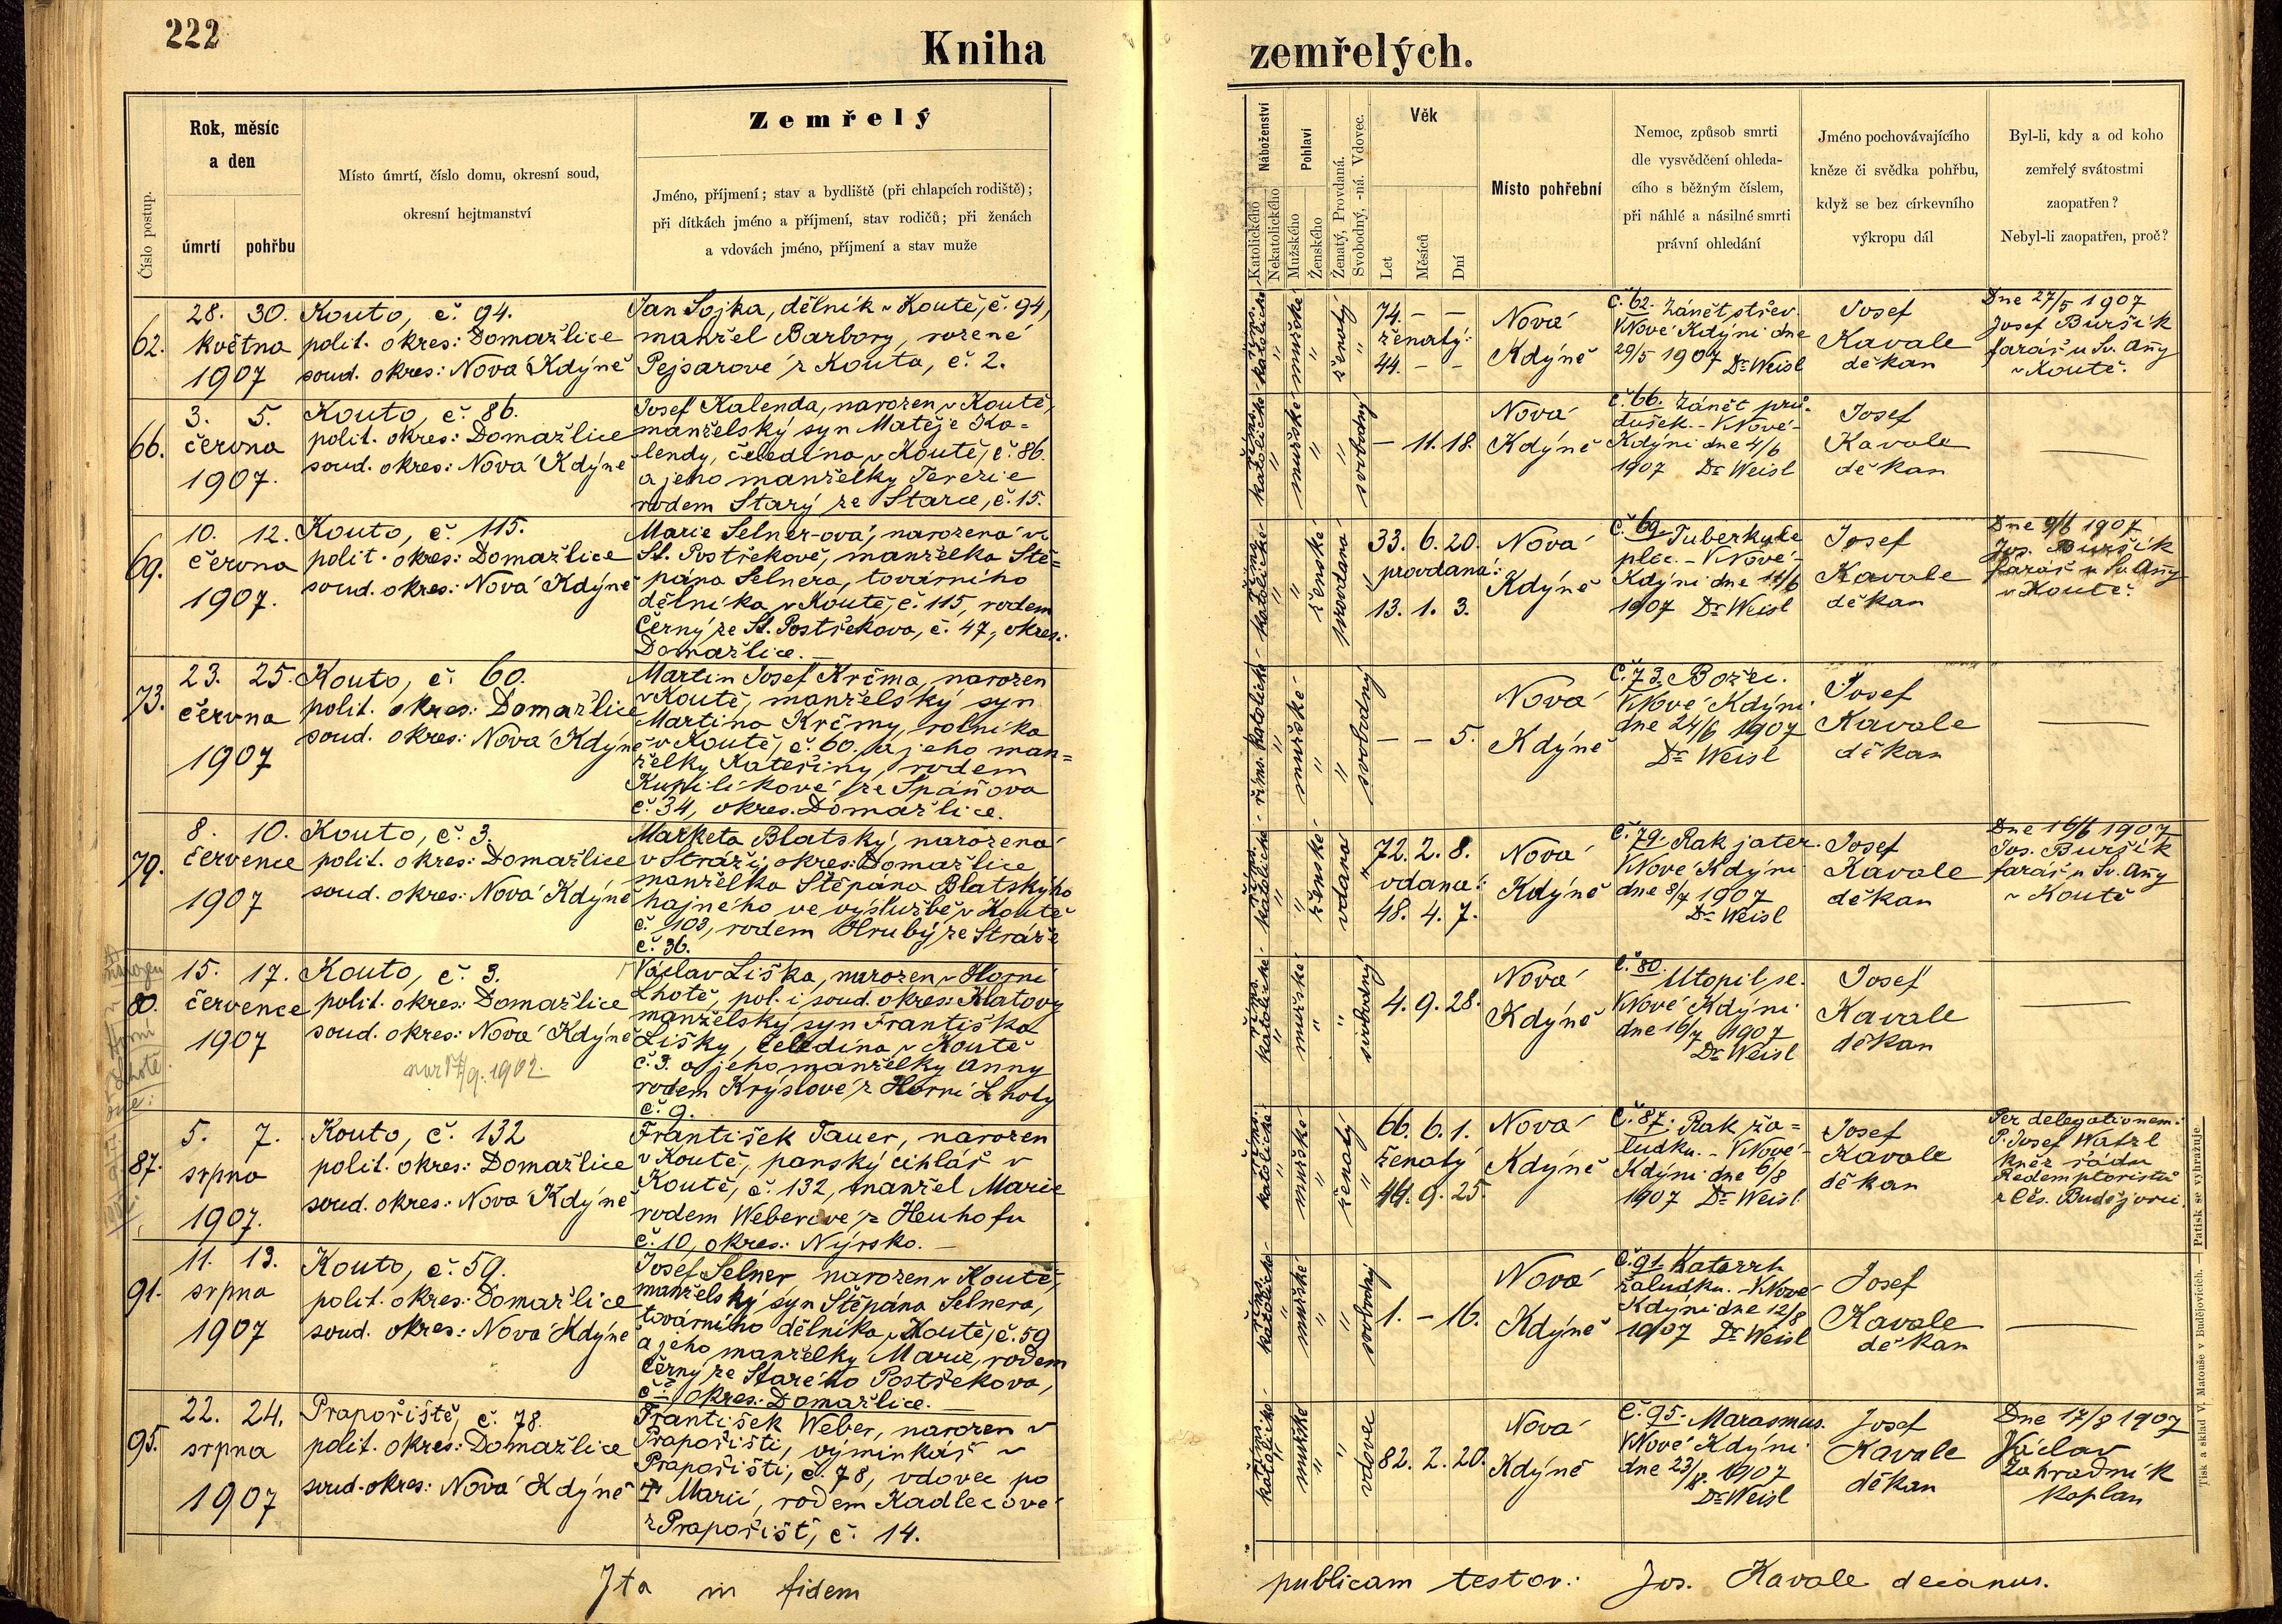 222
Kniha
zemřelých.
Číslo postup.
Rok, měsíc
a den
úmrtí
pohřbu
Místo úmrtí, číslo domu, okresní soud,
okresní hejtmanství
Zemřelý
Jméno, příjmení; stav a bydliště (při chlapcích rodiště);
při dítkách jméno a příjmení, stav rodičů; při ženách
a vdovách jméno, příjmení a stav muže
Náboženství
Katolického
Nekatolického
Pohlaví
Mužského
Ženského
Ženatý, Provdaná.
Svobodný, -ná. Vdovec.
Věk
Let
Měsíců
Dní
Místo pohřební
Nemoc, způsob smrti
dle vysvědčení ohleda-
cího s běžným číslem,
při náhlé a násilné smrti
právní ohledání
Jméno pochovávajícího
kněze či svědka pohřbu,
když se bez církevního
výkropu dál
Byl-li, kdy a od koho
zemřelý svátostmi
zaopatřen?
Nebyl-li zaopatřen, proč?
62.
28. 30.
května
1907
Kouto, č. 94.
polit. okres: Domažlice
soud. okres: Nová Kdýně
Jan Sojka, dělník v Koutě, č. 94,
manžel Barbory, rozené
Pejsarové z Kouta, č. 2.
říms.
katolické
"
mužské
"
ženatý
"
74. – –
ženatý:
44. – –
Nová
Kdýně
č. 62. Zánět střev
V Nové Kdýni dne
29/5 1907 Dr Weisl
Josef
Kavale
děkan
Dne 27/5 1907
Josef Buršík
farář u Sv. Anny
v Koutě.
66.
3. 5.
června
1907.
Kouto, č. 86.
polit. okres: Domažlice
soud. okres: Nová Kdýně
Josef Kalenda, narozen v Koutě,
manželský syn Matěje Ka=
lendy, čeledína v Koutě, č. 86.
a jeho manželky Terezie
rodem Starý ze Starce, č. 15.
říms.
katolické
"
mužské
"
svobodný
"
– 11. 18.
Nová
Kdýně
č. 66. Zánět prů-
dušek. – V Nové-
Kdýni dne 4/6
1907 Dr Weisl
Josef
Kavale
děkan
—
69.
10. 12.
června
1907.
Kouto, č. 115.
polit. okres: Domažlice
soud. okres: Nová Kdýně
Marie Selner-ová, narozená ve
St. Postřekově, manželka Ště=
pána Selnera, továrního
dělníka v Koutě, č. 115, rodem
Černý ze St. Postřekova, č. 47, okres:
Domažlice. –
říms.
katolické
"
ženské
"
provdaná
33. 6. 20.
provdaná:
13. 1. 3.
Nová
Kdýně
č. 69. Tuberkule
plic. – V Nové-
Kdýni dne 11/6
1907 Dr Weisl
Josef
Kavale
děkan
Dne 9/6 1907
Jos. Buršík
farář u Sv. Anny
v Koutě.
73.
23. 25.
června
1907
Kouto, č. 60.
polit. okres: Domažlice
soud. okres: Nová Kdýně
Martin Josef Krčma, narozen
v Koutě, manželský syn
Martina Krčmy, rolníka
v Koutě, č. 60. a jeho man=
želky Kateřiny, rodem
Kupilíkové ze Spáňova
č. 34, okres. Domažlice.
říms. katolické
"
mužské
"
svobodný
"
– – 5.
Nová
Kdýně
č. 73. Božec.
V Nové Kdýni
dne 24/6 1907
Dr Weisl
Josef
Kavale
děkan
—
79.
8. 10.
července
1907
Kouto, č. 3.
polit. okres: Domažlice
soud. okres: Nová Kdýně
Marketa Blatský, narozená
v Stráži, okres: Domažlice
manželka Štěpána Blatského
hajného ve výslužbě v Koutě
č. 103, rodem Hrubý ze Stráže
č. 36.
říms.
katolické
"
ženské
"
vdaná
"
72. 2. 8.
vdaná:
48. 4. 7.
Nová
Kdýně
č. 79. Rak jater.
V Nové Kdýni
dne 8/7 1907
Dr Weisl
Josef
Kavale
děkan
Dne 16/6 1907
Jos. Buršík
farář u Sv. Anny
v Koutě
narozen
v
Horní
Lhotě.
80.
15. 17.
července
1907
Kouto, č. 3.
polit. okres: Domažlice
soud. okres: Nová Kdýně
nar. 17/9. 1902.
Václav Liška, narozen v Horní
Lhotě, pol. i soud. okres: Klatovy
manželský syn Františka
Lišky, čeledína v Koutě
č. 3. a jeho manželky Anny
rodem Krýslové z Horní Lhoty
č. 9.
říms.
katolické
"
mužské
"
svobodný
"
4. 9. 28.
Nová
Kdýně
č. 80. Utopil se.
V Nové Kdýni
dne 16/7 1907
Dr Weisl
Josef
Kavale
děkan
—
87.
5. 7.
srpna
1907.
Kouto, č. 132
polit. okres: Domažlice
soud. okres: Nová Kdýně
František Tauer, narozen
v Koutě, panský cihlář v
Koutě, č. 132, manžel Marie
rodem Weberové z Heuhofu
č. 10, okres: Nýrsko. –
říms.
katolické
"
mužské
"
ženatý
"
66. 6. 1.
ženatý
44. 9. 25.
Nová
Kdýně
č. 87. Rak ža=
ludku. – V Nové-
Kdýni dne 6/8
1907 Dr Weisl
Josef
Kavale
děkan
Per delegationem:
P. Josef Watzl
kněz řádu
Redemptoristů
z Čes. Budějovic.
91.
11. 13.
srpna
1907
Kouto, č. 59.
polit. okres: Domažlice
soud. okres: Nová Kdýně
Josef Selner, narozen v Koutě,
manželský syn Štěpána Selnera,
továrního dělníka v Koutě, č. 59
a jeho manželky Marie, rodem
Černý ze Starého Postřekova,
č. okres: Domažlice. –
říms.
katolické
"
mužské
"
svobodný
"
1. – 16.
Nová
Kdýně
č. 91. Katarrh
žaludku. – V Nové-
Kdýni dne 12/8
1907 Dr Weisl
Josef
Kavale
děkan
—
95.
22. 24.
srpna
1907
Prapořiště, č. 78.
polit. okres: Domažlice
soud. okres: Nová Kdýně
František Weber, narozen v
Prapořišti, výminkář v
Prapořišti, č. 78, vdovec po
† Marii, rodem Kadlecové
z Prapořišť, č. 14.
říms.
katolické
"
mužské
"
vdovec
"
82. 2. 20.
Nová
Kdýně
č. 95. Marasmus.
V Nové Kdýni
dne 23/8. 1907
Dr Weisl
Josef
Kavale
děkan
Dne 17/8 1907
Václav
Zahradník
kaplan
Ita in fidem
publicam testor: Jos. Kavale decanus.
Tisk a sklad V. Matouše v Budějovicích. — Patisk se vyhražuje.